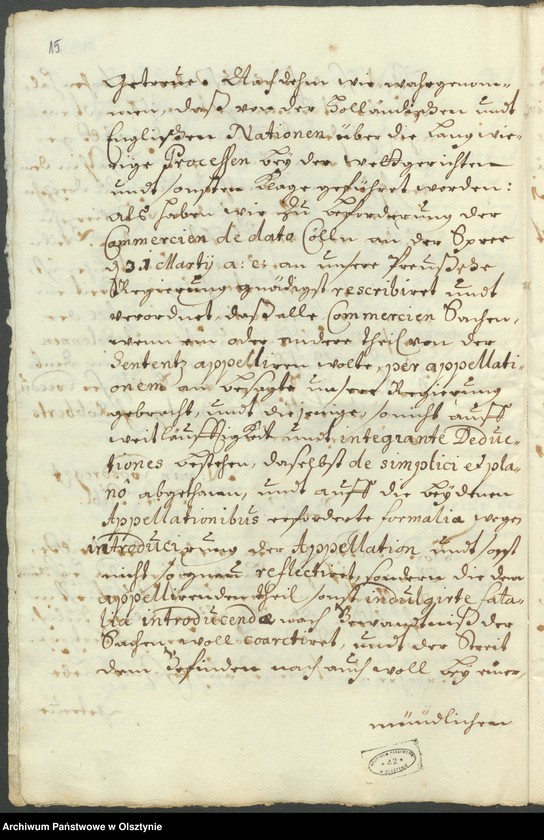 15
Getreue. Nachdehm wir wahrgenom-
men, daß von der Holländischen undt
Englischen Nationen über die langwie-
rige Processen bey der Wettgerichten
undt sonsten Klage geführet worden:
Als haben wir zu beforderung der
Commercien de dato Cölln an der Spree
d 31 Martij a: c: an unsere Preußsche
Regierung gnädigst rescribiret undt
verordnet, daß alle Commercien Sachen,
wenn ein oder andere theil von der
Sententz appelliren wolte, per appellati-
onem an besagte unsere Regierung
gebracht, undt diejenige, so nicht auff
weitläufftigkeit undt integrante Deduc-
tiones bestehen, daselbst de simplici et pla-
no abgethann, undt auff die bey denen
Appellationibus erforderte formalia wegen
introducirung der Appellation undt sonst
nicht so genau reflectiret, sondern die dem
appellirenden theil sonst indulgirte fata-
lia introducendæ nach Bewandtniß der
Sachen woll coarctiret, undt der Streit
dem Befinden nach auch woll bey einer
mündlichen
ARCHIWUM PAŃSTWOWE
* A2 *
W OLSZTYNIE
Archiwum Państwowe w Olsztynie